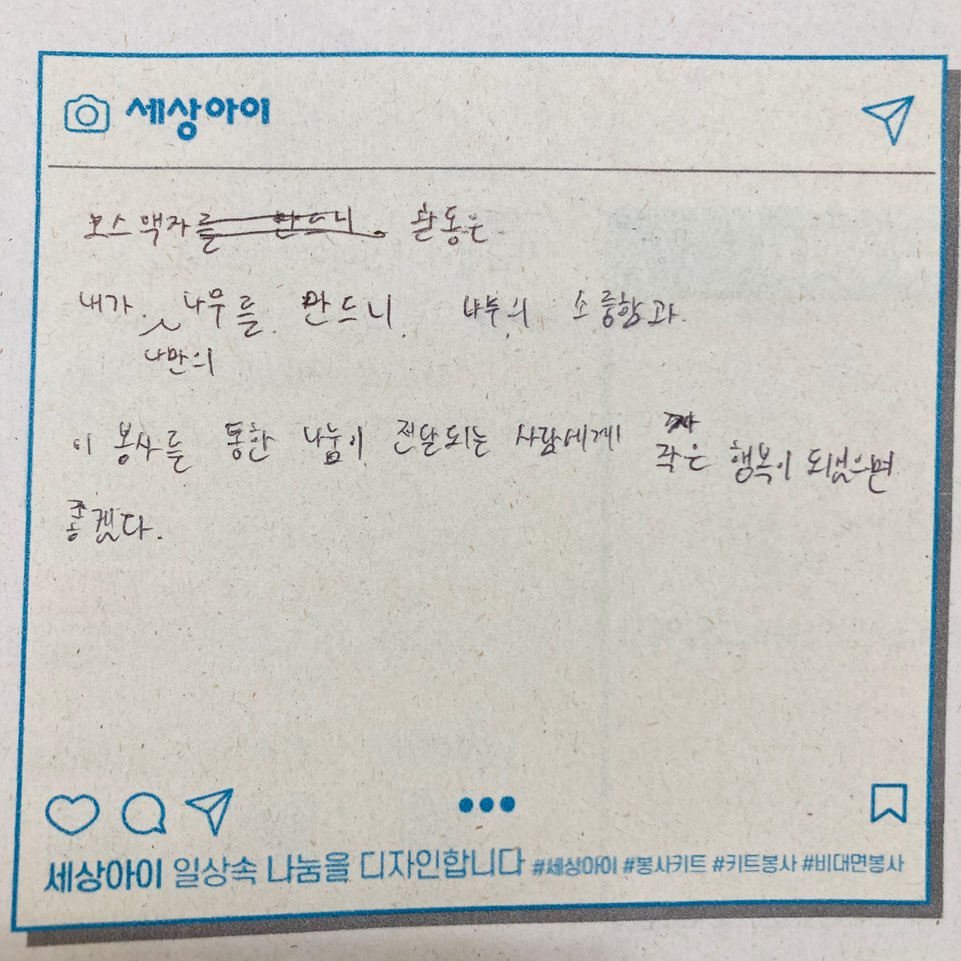 세상아이
모스 액자를 만드니. 활동은
내가. 나무를. 만드니. 나무의 소중함과.
나만의
이 봉사를 통한 나눔이 전달되는 사람에게 작은 행복이 되었으면
좋겠다.
세상아이 일상속 나눔을 디자인합니다 #세상아이 #봉사키트 #키트봉사 #비대면봉사